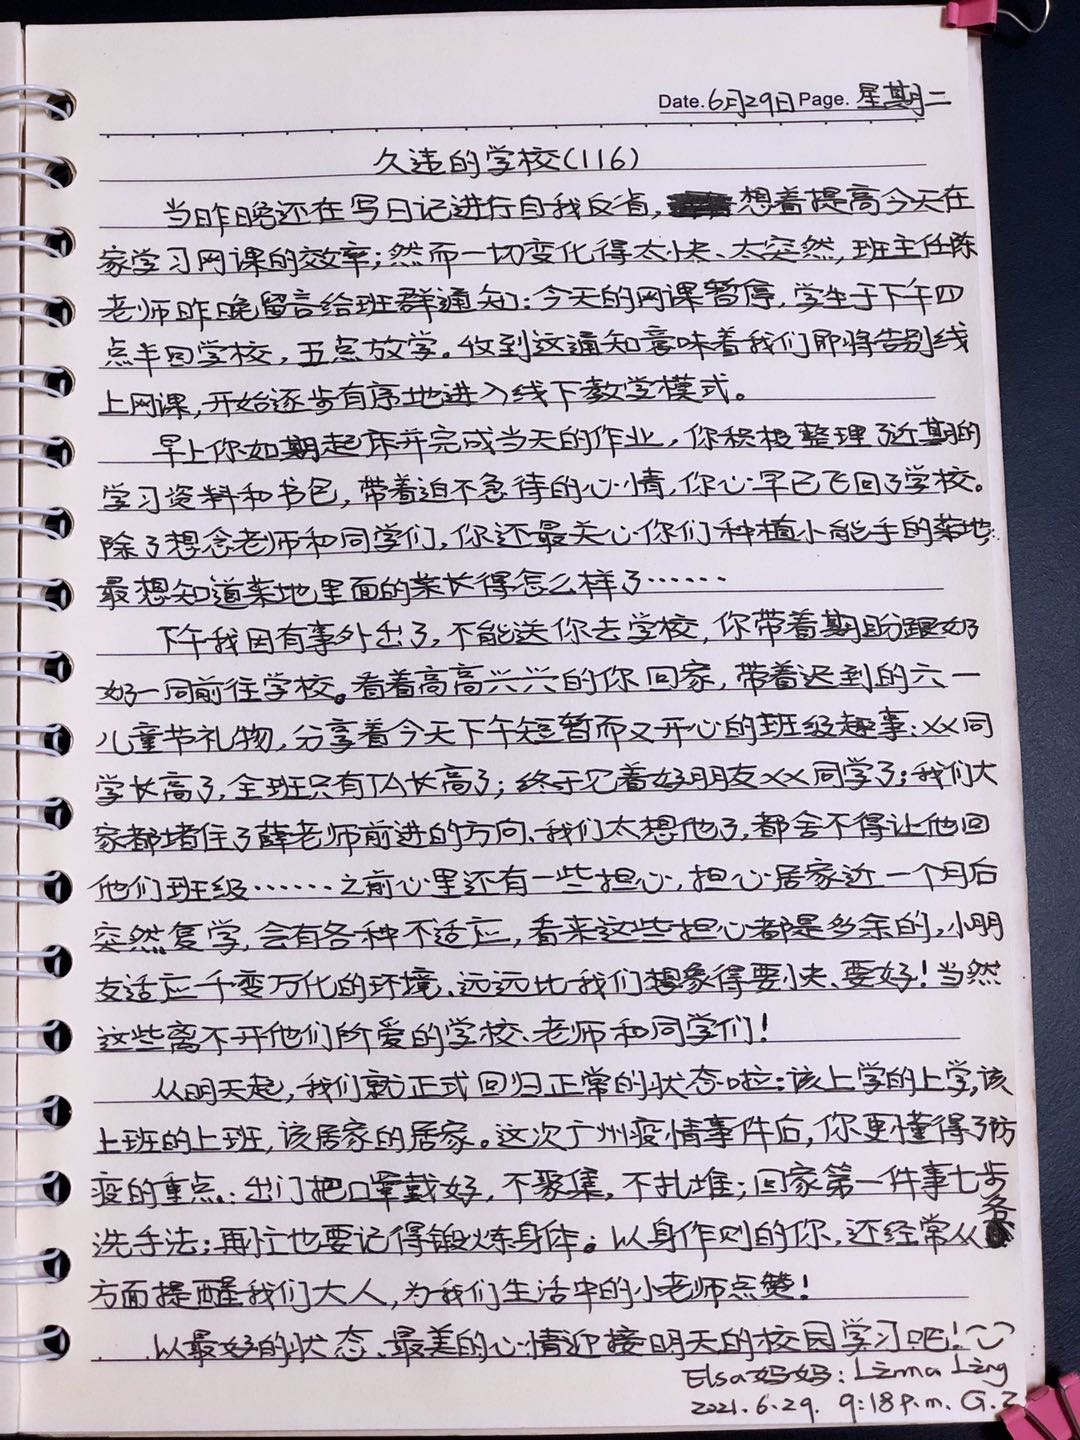 Date. 6月29日 Page. 星期二
久违的学校(116)
当昨晚还在写日记进行自我反省, 想着提高今天在
家学习网课的效率;然而一切变化得太快、太突然,班主任陈
老师昨晚留言给班群通知:今天的网课暂停,学生于下午四
点半回学校,五点放学。收到这通知意味着我们即将告别线
上网课,开始逐步有序地进入线下教学模式。
早上你如期起床并完成当天的作业,你积极整理了近期的
学习资料和书包,带着迫不急待的心情,你心早已飞回了学校。
除了想念老师和同学们,你还最关心你们种植小能手的菜地:
最想知道菜地里面的菜长得怎么样了……
下午我因有事外出了,不能送你去学校,你带着期盼跟奶
奶一同前往学校。看着高高兴兴的你回家,带着迟到的六一
儿童节礼物,分享着今天下午短暂而又开心的班级趣事:xx同
学长高了,全班只有TA长高了;终于见着好朋友xx同学了;我们大
家都堵住了薛老师前进的方向、我们太想他了,都舍不得让他回
他们班级……之前心里还有一些担心,担心居家近一个月后
突然复学,会有各种不适应,看来这些担心都是多余的,小朋
友适应千变万化的环境、远远比我们想象得要快、要好!当然
这些离不开他们所爱的学校、老师和同学们!
从明天起,我们就正式回归正常的状态啦:该上学的上学,该
上班的上班,该居家的居家。这次广州疫情事件后,你更懂得了防
疫的重点:出门把口罩戴好,不聚集,不扎堆;回家第一件事七步
洗手法;再忙也要记得锻炼身体。以身作则的你,还经常从各
方面提醒我们大人,为我们生活中的小老师点赞!
以最好的状态、最美的心情迎接明天的校园学习吧!
Elsa妈妈: Linna Ling
2021.6.29. 9:18 P.m. G.Z